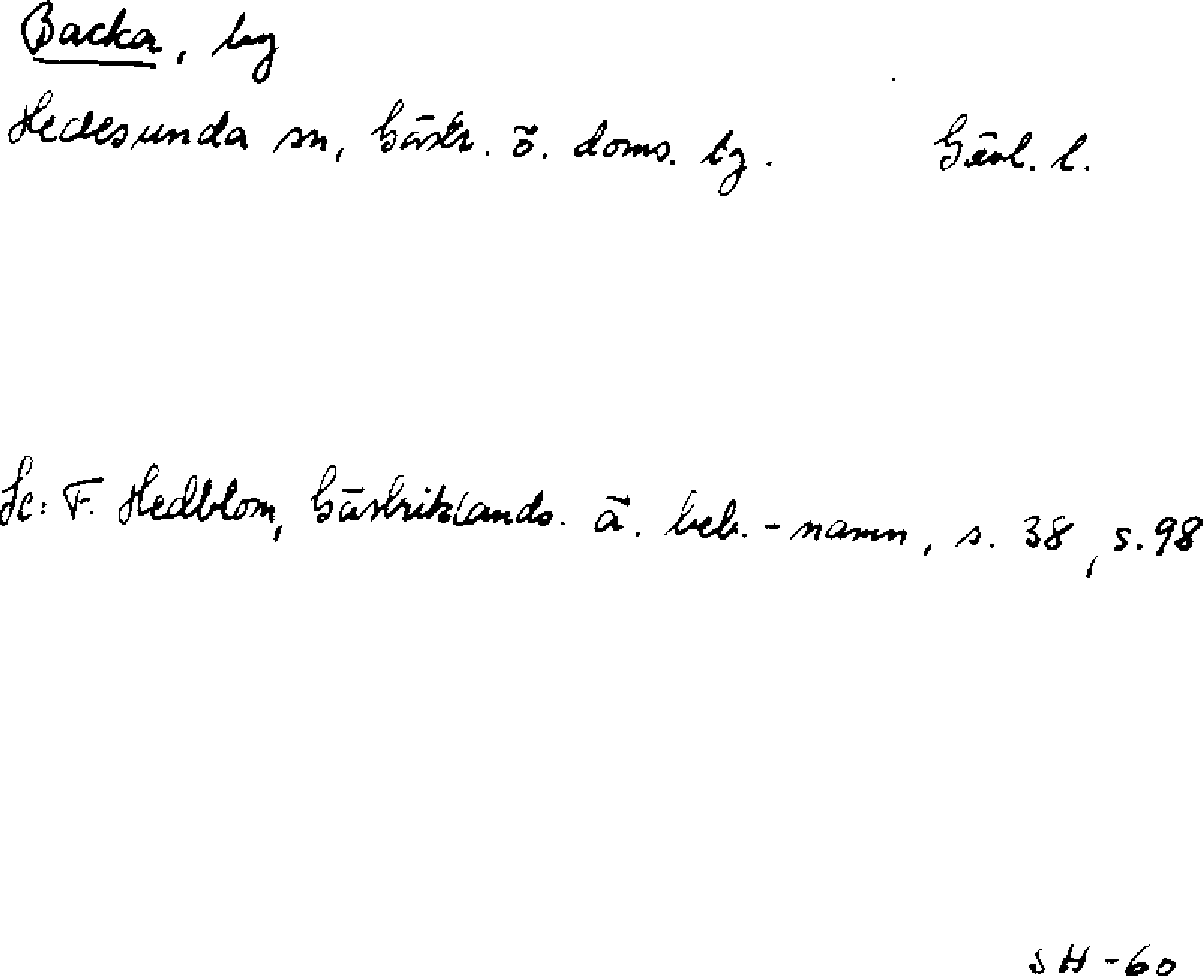 Backa, by
Hedesunda sn, Gästr. ö. doms. bg. Gävl. l.
Se: F. Hedblom, Gästriklands. ä. beb. - namn, s. 38, s. 98
SH - 60